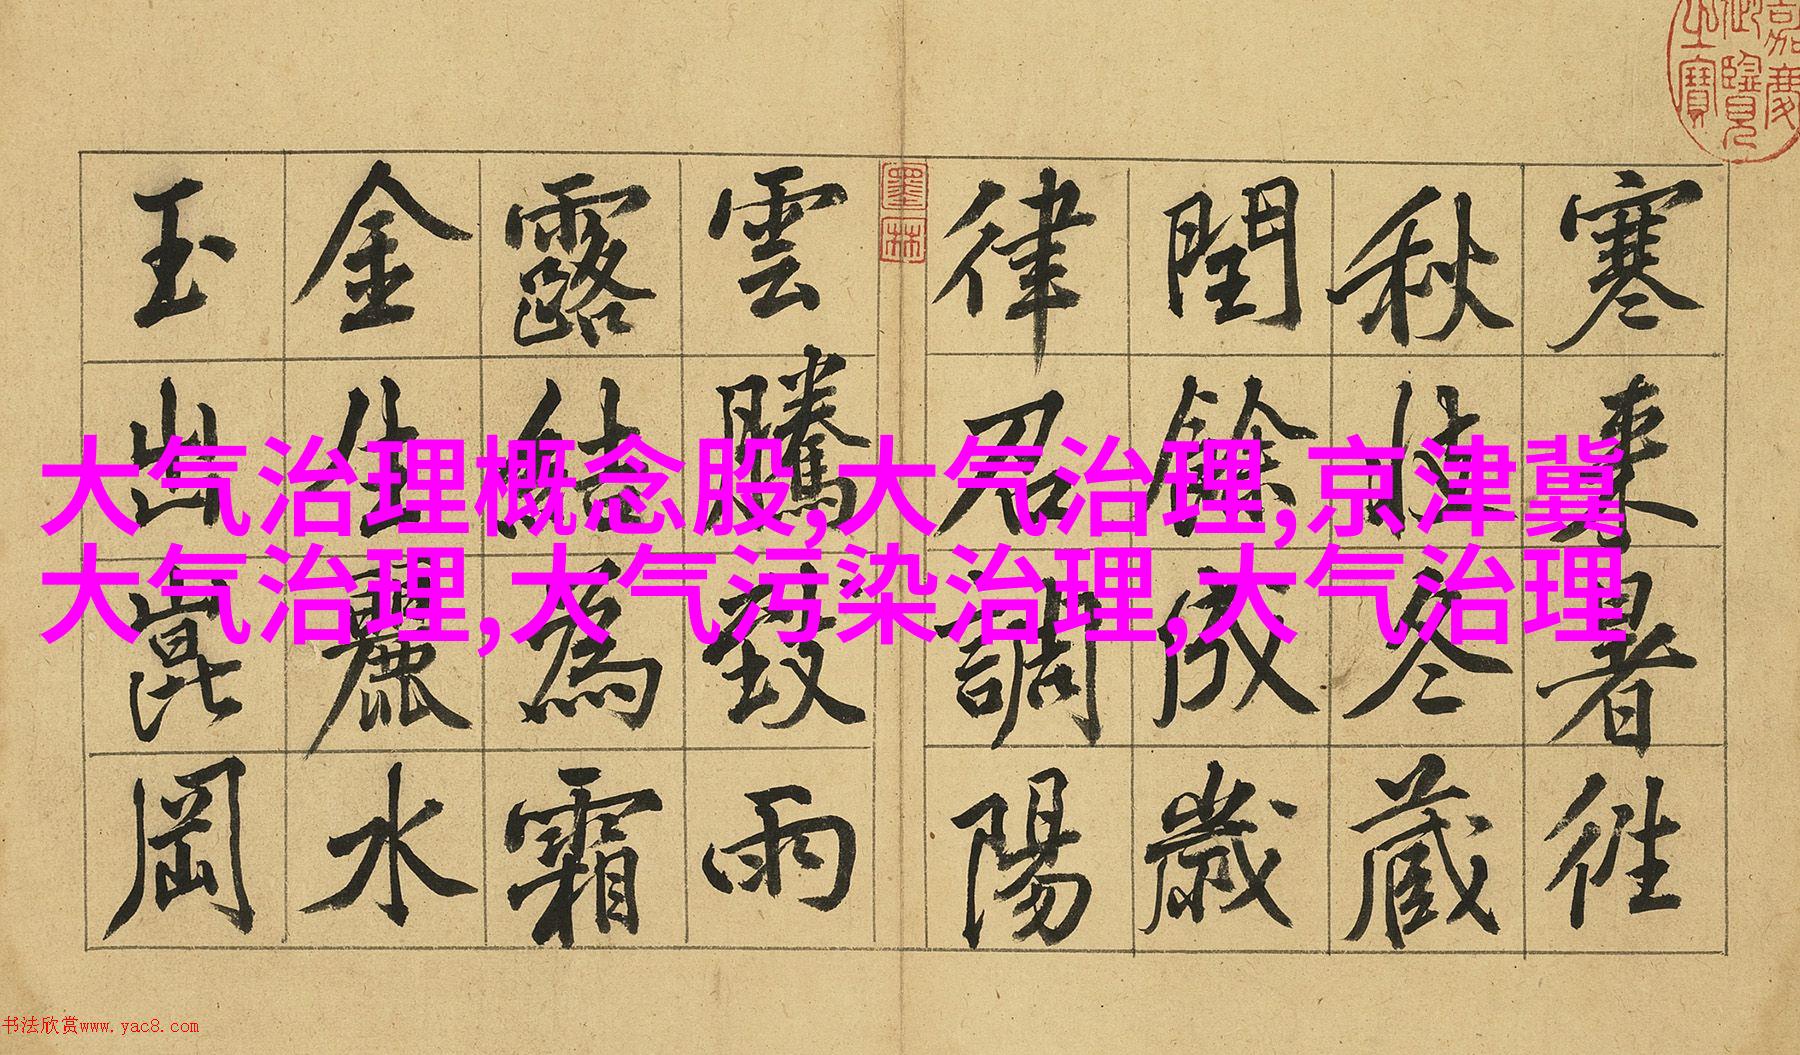 嘉慶
御覽
之寶
寒來暑徃
秋收冬蔵
閏餘成歲
律召調陽
墨林
雲騰致雨
露結為霜
金生麗水
玉出崑岡
大气治理概念股,大气治理,京津冀
大气治理,大气污染治理,大气治理
书法欣赏www.yac8.com